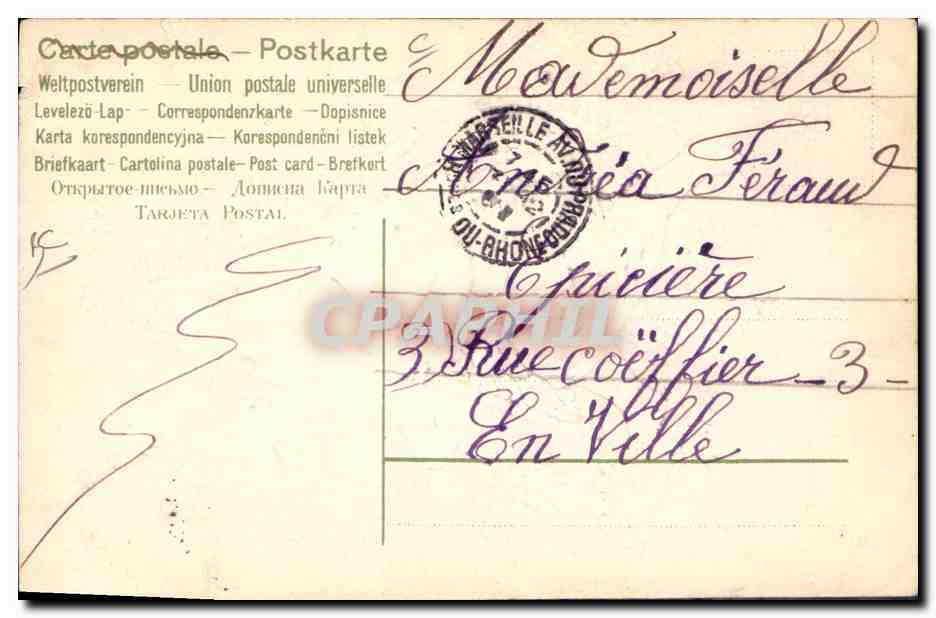 Carte postale – Postkarte
Weltpostverein — Union postale universelle
Levelező-Lap — Correspondenzkarte — Dopisnice
Karta korespondencyjna — Korespondenční lístek
Briefkaart - Cartolina postale - Post card - Brefkort
Открытое-письмо – Дописна Карта
TARJETA POSTAL
Mademoiselle
Andréa Féraud
Epicière
3) Rue Coëffier - 3 -
En Ville
MARSEILLE AV. DU PRADO
DU-RHONE
CPAPHIL